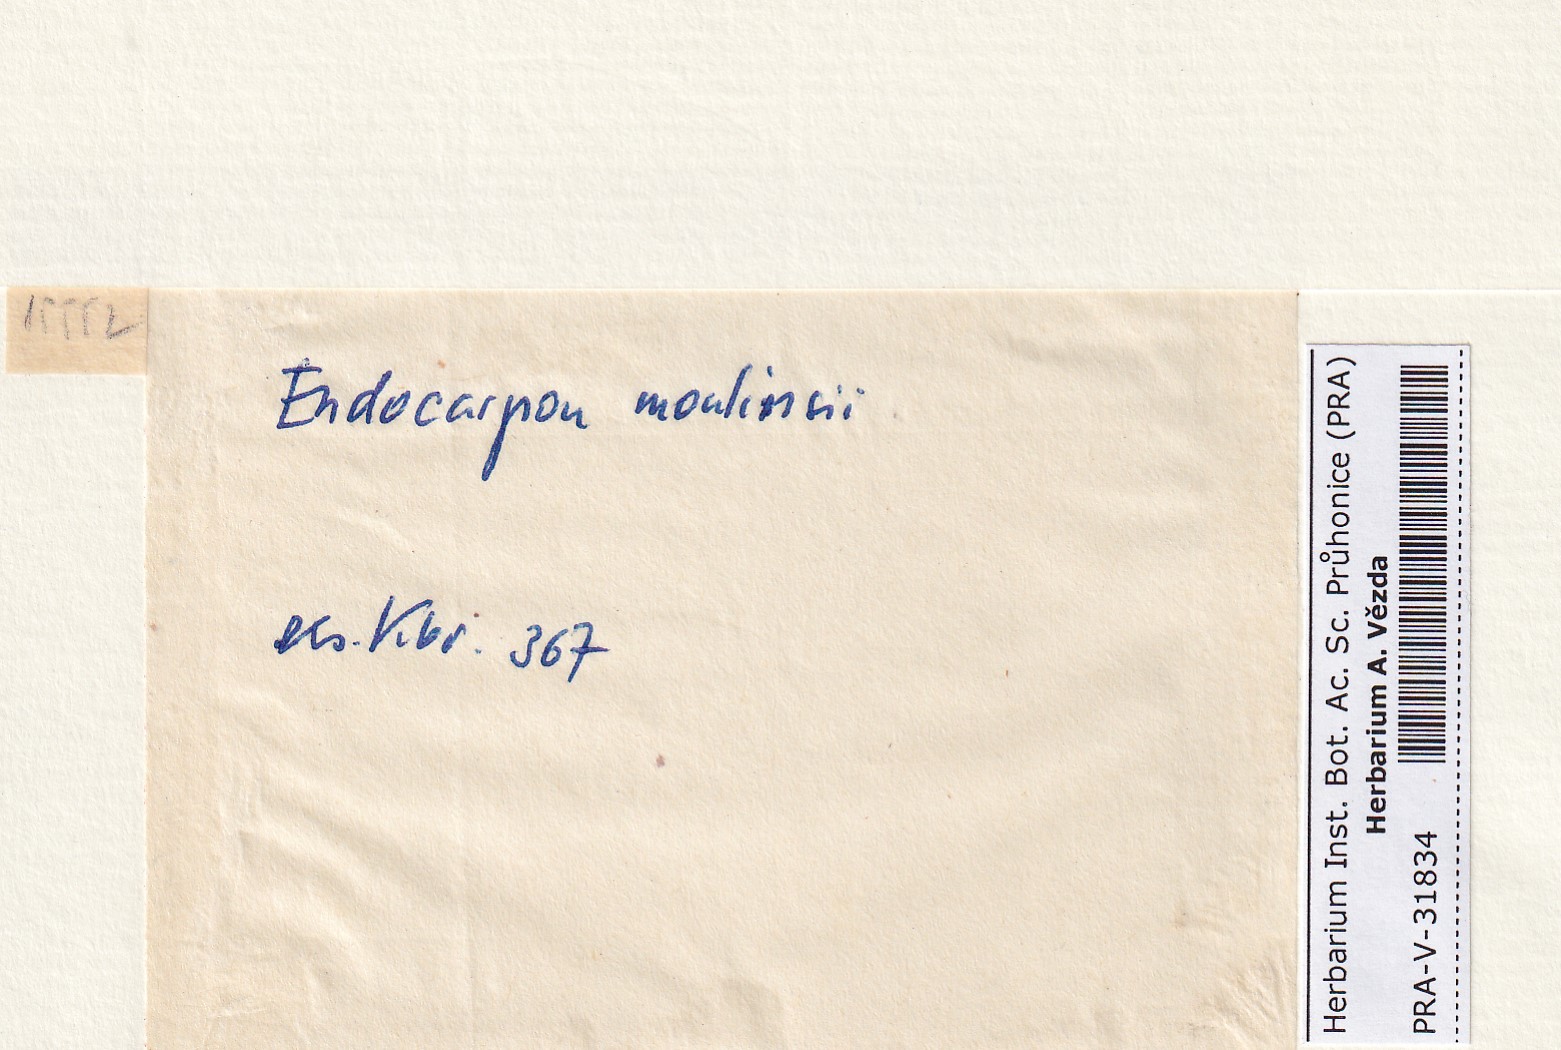 Endocarpon moulinsii
367
Herbarium Inst. Bot. Ac. Sc. Průhonice (PRA)
Herbarium A. Vězda
PRA-V-31834